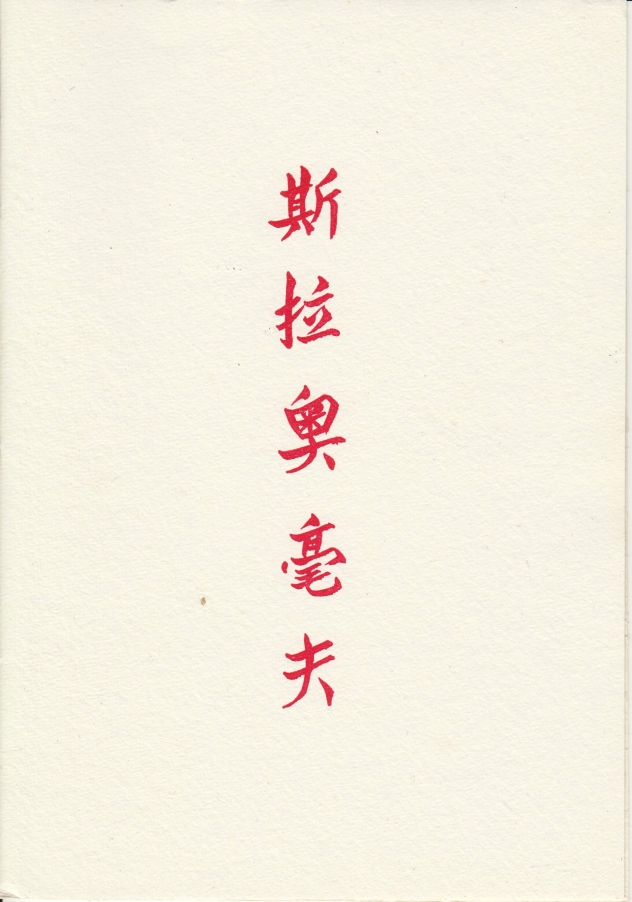 斯拉奥毫夫